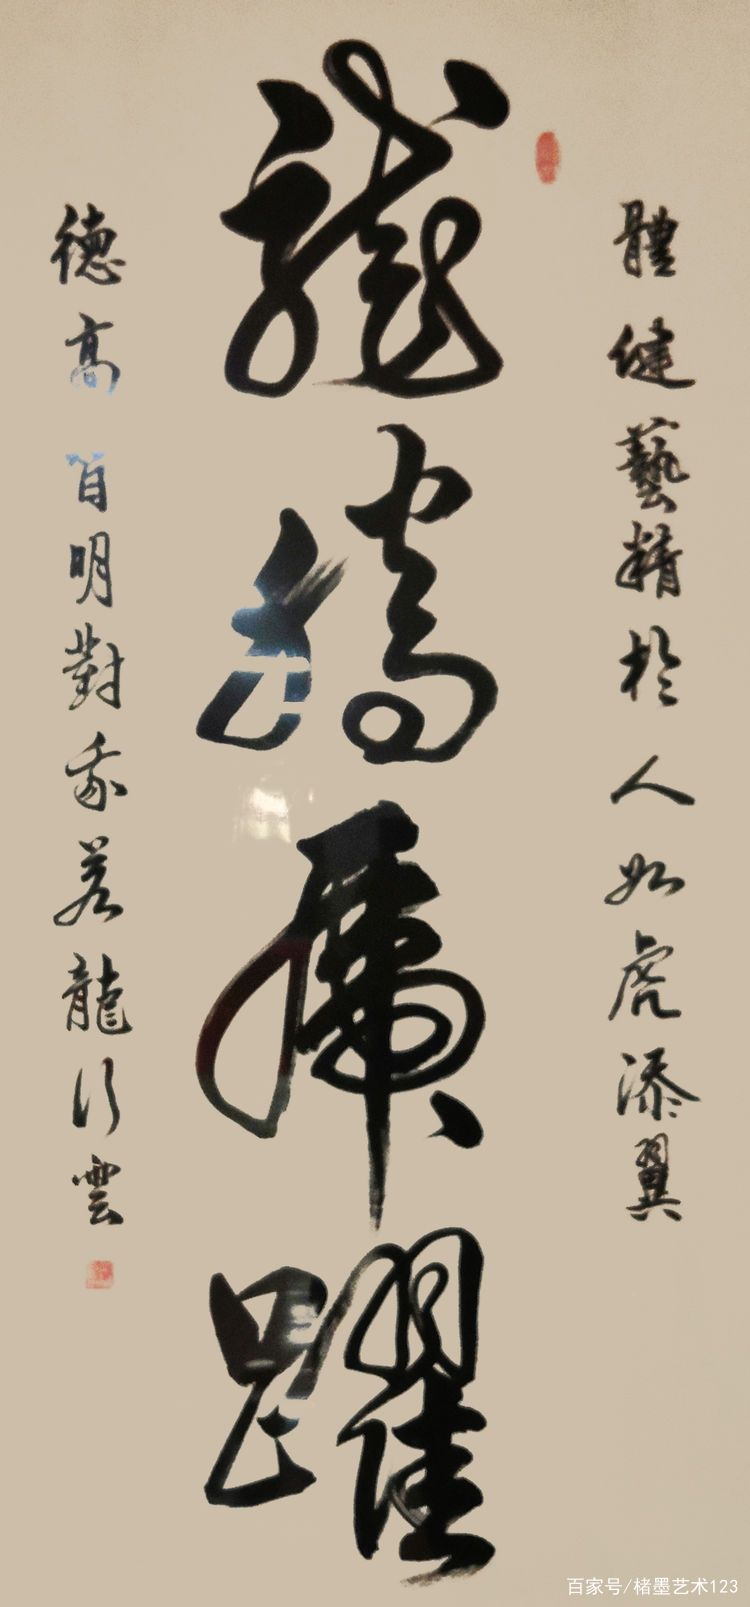 體健藝精於人如虎添翼
龍矯虎躍
德高明對我若龍行雲
百家号/楮墨艺术123